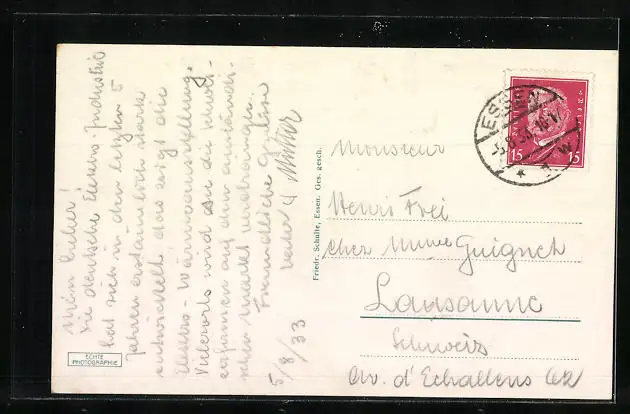 Mein Lieber!
Die deutsche Elektro Industrie
hat sich in den letzten 5
Jahren erstaunlich stark
entwickelt das zeigt die
Elektro-Wärmeausstellung.
Vielerorts wird sie die Schwei-
auf dem ausländi-
schen Markt verdrängen.
Freundliche Grüsse
5/8/33
ECHTE
PHOTOGRAPHIE
Friedr. Schulte, Essen. Ges. gesch.
ESSEN
15 15
Monsieur
Henri Frei
chez Mme Guignet
Lausanne
Schweiz
Av. d'Echallens 62